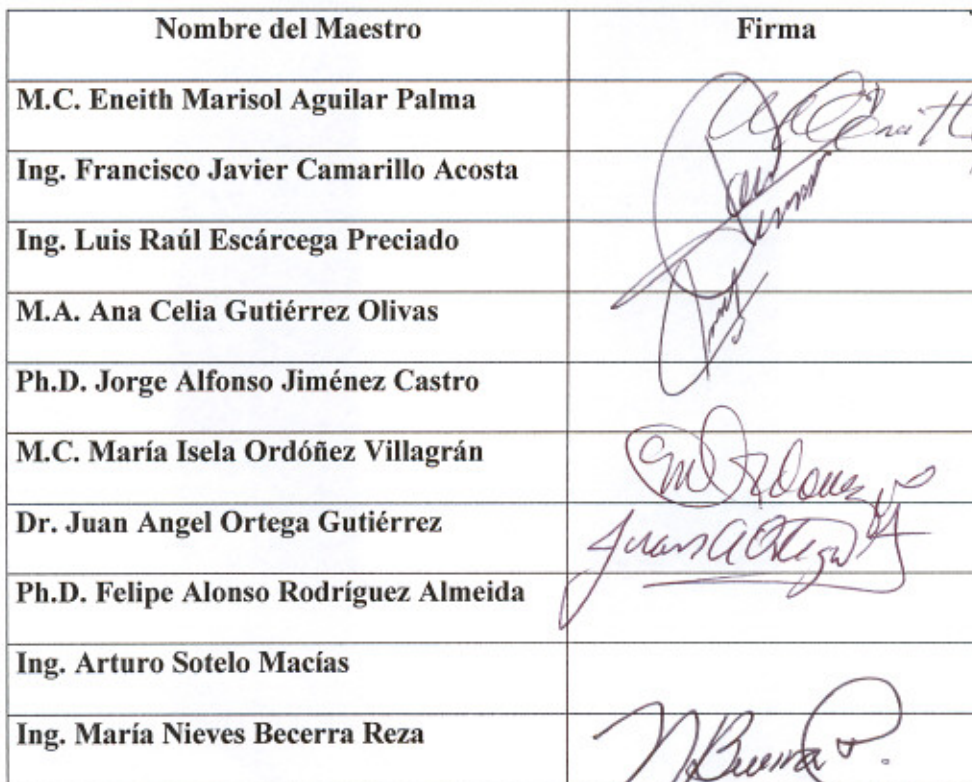 Nombre del Maestro Firma
M.C. Eneith Marisol Aguilar Palma
Ing. Francisco Javier Camarillo Acosta
Ing. Luis Raúl Escárcega Preciado
M.A. Ana Celia Gutiérrez Olivas
Ph.D. Jorge Alfonso Jiménez Castro
M.C. María Isela Ordóñez Villagrán
Dr. Juan Angel Ortega Gutiérrez Juan A Ortega G
Ph.D. Felipe Alonso Rodríguez Almeida
Ing. Arturo Sotelo Macías
Ing. María Nieves Becerra Reza